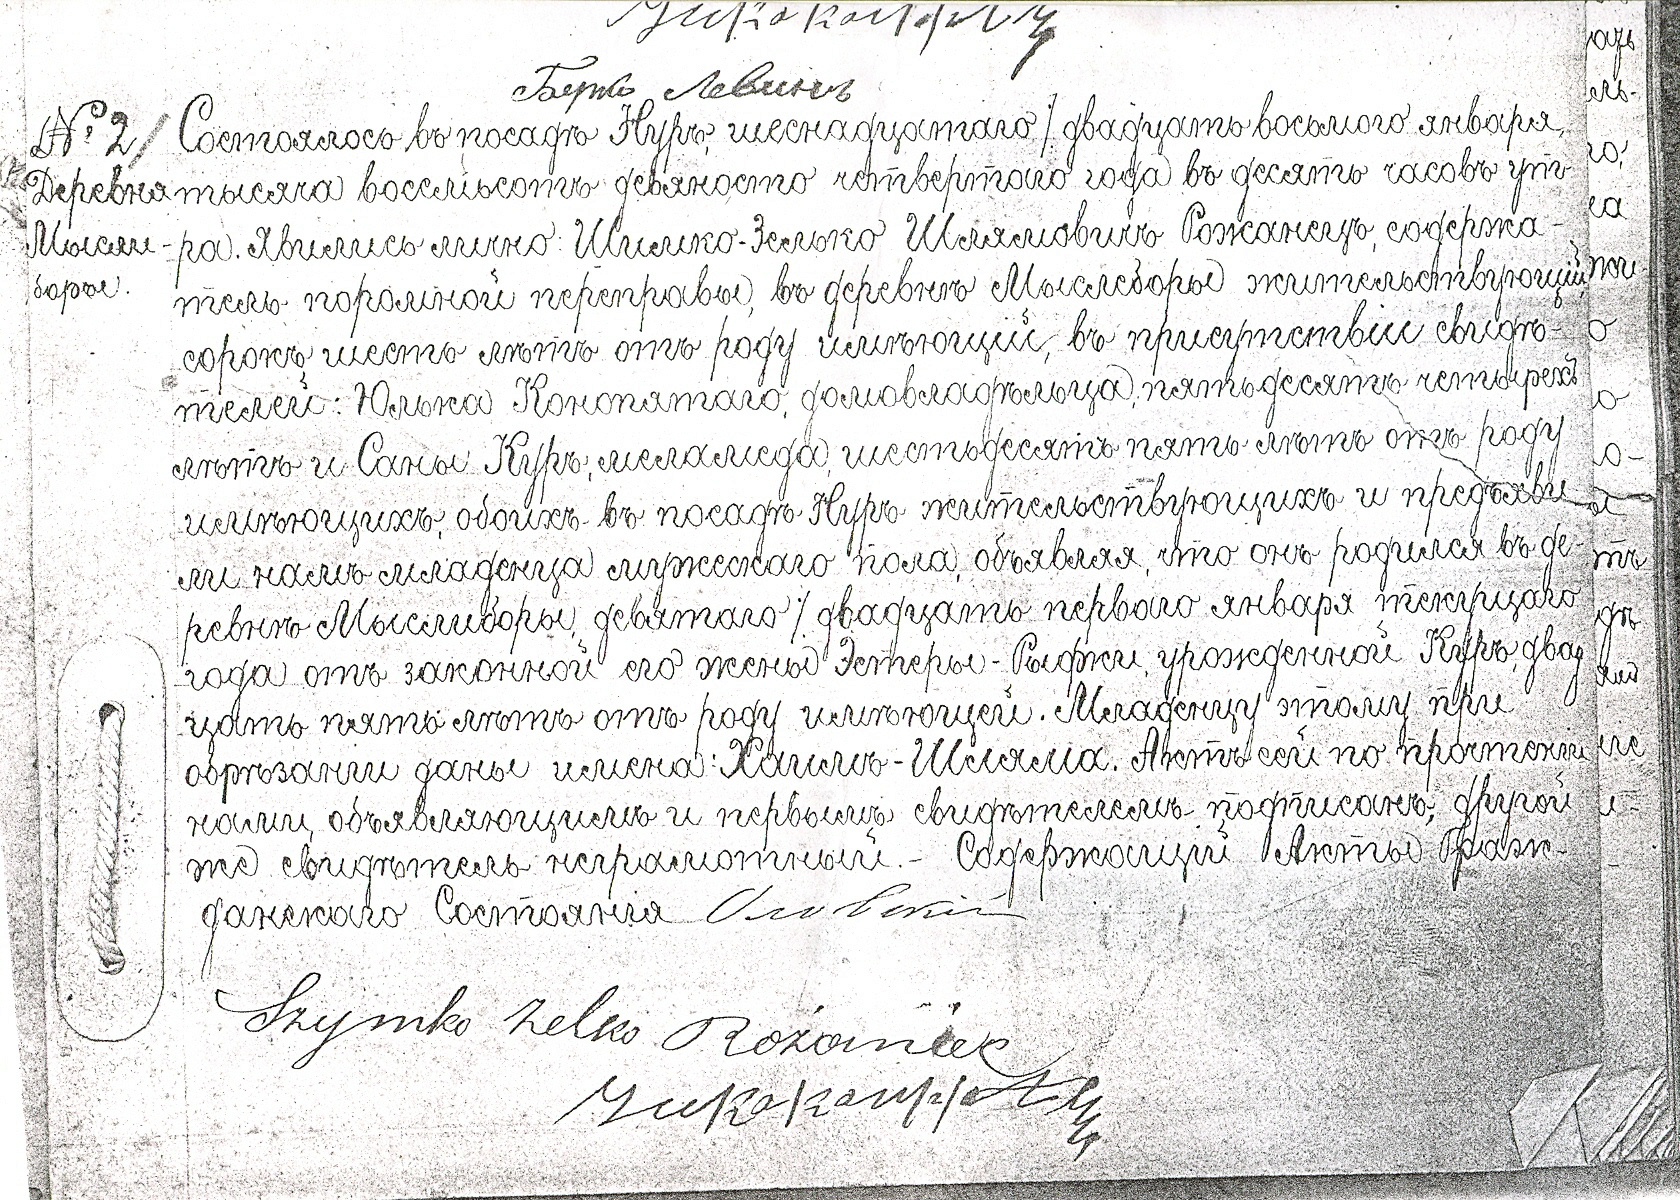 Берко Левинъ
№ 2/ Состоялось въ посадѣ Нурѣ, шеснадцатаго / двадцать восьмого января,
Деревня тысяча восемьсотъ девяносто четвертаго года въ десять часовъ ут-
Мысли- ра. Явились лично: Шимко-Зелько Шлямовичъ Рожанецъ, содержа-
боры. тель поромной переправы, въ деревнѣ Мыслеборы жительствующій,
сорокъ шесть лѣтъ отъ роду имѣющій, въ присутствіи свидѣ-
телей: Юлька Конопятаго, домовладѣльца, пятьдесятъ четырехъ
лѣтъ и Саны Куръ, меламеда, шестьдесятъ пять лѣтъ отъ роду
имѣющихъ, обоихъ въ посадѣ Нурѣ жительствующихъ и предъяви
ли намъ младенца мужескаго пола, объявляя, что онъ родился въ де-
ревнѣ Мыслиборы, девятаго / двадцать перваго января текущаго
года отъ законной его жены Эстеры-Рыфки, урожденной Куръ, двад
цать пять лѣтъ отъ роду имѣющей. Младенцу этому при
обрѣзаніи даны имена: Хаимъ-Шляма. Актъ сей по прочтеніи
нами, объявляющимъ и первымъ свидѣтелемъ подписанъ, другой
же свидѣтель неграмотный. - Содержащій Акты Граж-
данскаго Состоянія
Szymko Zelko Rożaniec